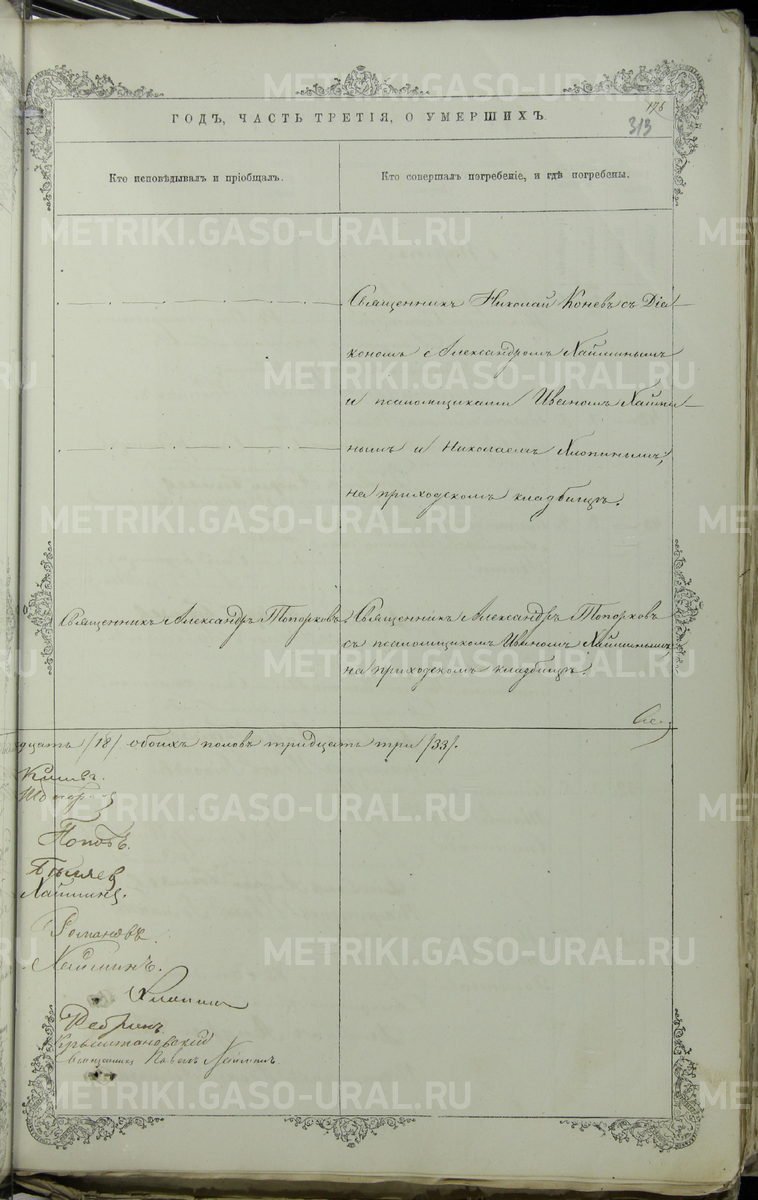 176
313
ГОДЪ, ЧАСТЬ ТРЕТІЯ, О УМЕРШИХЪ.
Кто исповѣдывалъ и пріобщалъ.
Кто совершалъ погребеніе, и гдѣ погребены.
Священникъ Николай Коневъ съ Діа-
кономъ Александромъ Хайминымъ
и псаломщиками Иваномъ Хайми-
нымъ и Николаемъ Хлопинымъ,
на приходскомъ кладбищѣ.
Священникъ Александръ Топорковъ.
Священникъ Александръ Топорковъ
съ псаломщикомъ Иваномъ Хайминымъ,
на приходскомъ кладбищѣ.
дцать /18/ обоихъ половъ тридцать три /33/.
Поповъ.
Хайминъ.
Романовъ.
Хайминъ.
Хлопинъ
Крыжановскій
Священникъ Павелъ Хайминъ.
METRIKI.GASO-URAL.RU